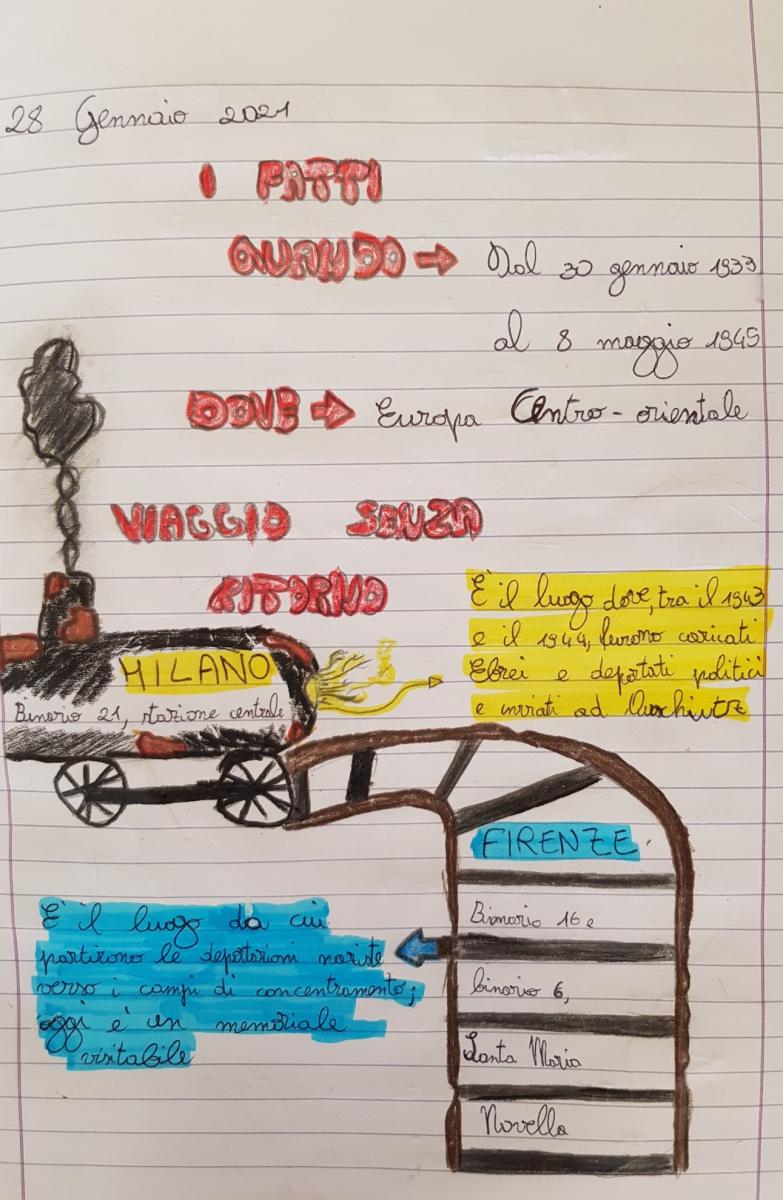 28 Gennaio 2021
I FATTI
QUANDO → Dal 30 gennaio 1933
al 8 maggio 1945
DOVE → Europa Centro-orientale
VIAGGIO SENZA
RITORNO
È il luogo dove, tra il 1943
e il 1944, furono caricati
Ebrei e deportati politici
e inviati ad Auschwitz
MILANO
Binario 21, stazione centrale
FIRENZE
Binario 16 e
binario 6,
Santa Maria
Novella
È il luogo da cui
partirono le deportazioni naziste
verso i campi di concentramento;
oggi è un memoriale
visitabile